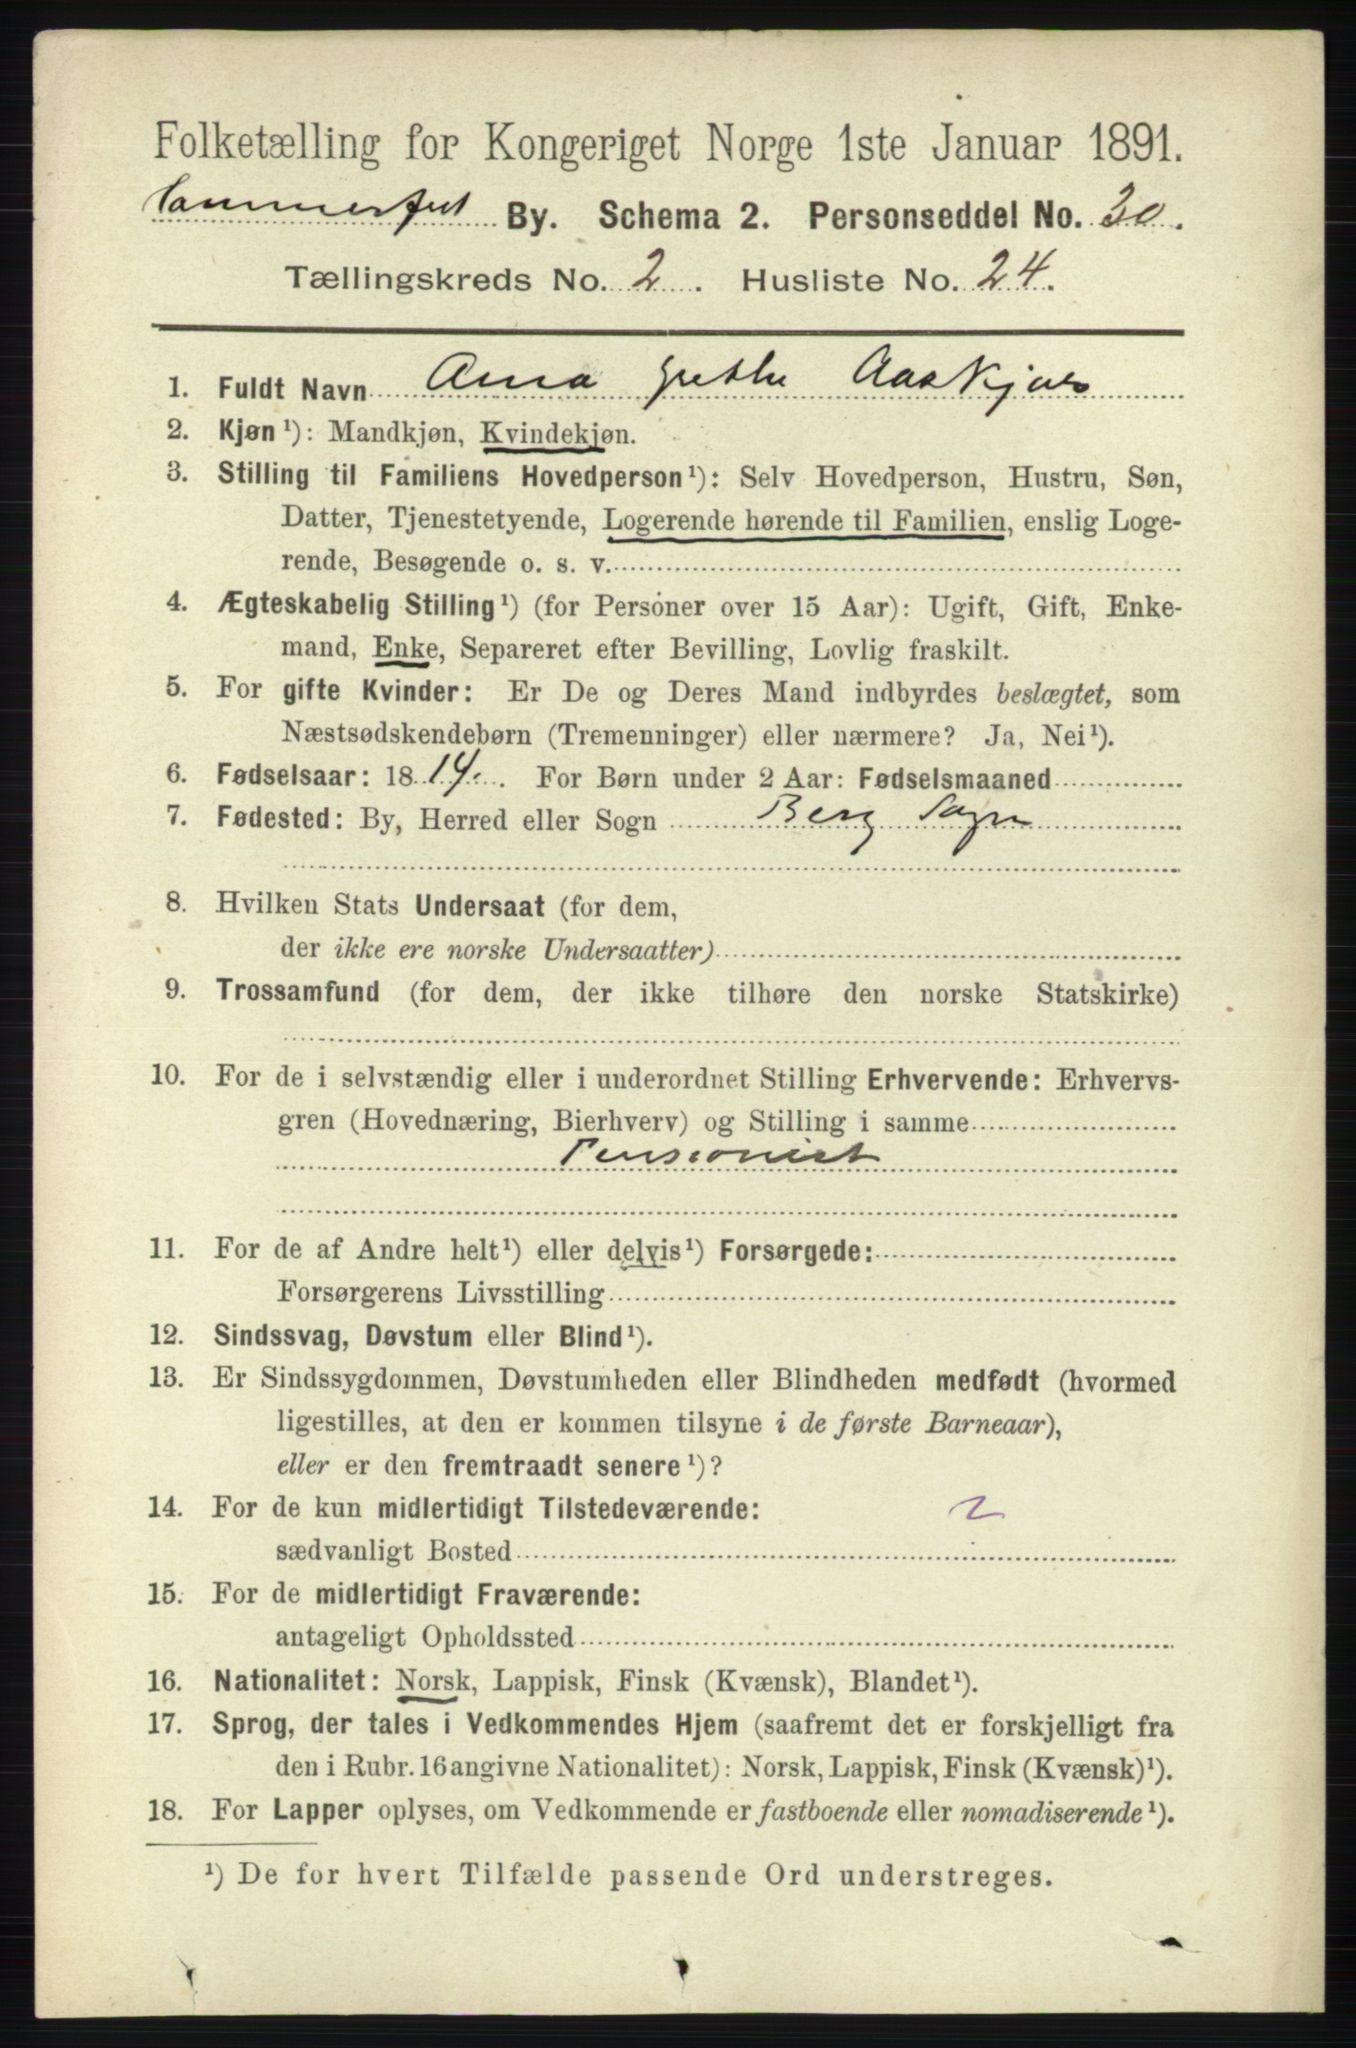 Folketælling for Kongeriget Norge 1ste Januar 1891.
Hammerfest By. Schema 2. Personseddel No. 30.
Tællingskreds No. 2. Husliste No. 24.
1. Fuldt Navn Anna Grethe Aaskjær
2. Kjøn¹): Mandkjøn, Kvindekjøn.
3. Stilling til Familiens Hovedperson¹): Selv Hovedperson, Hustru, Søn,
Datter, Tjenestetyende, Logerende hørende til Familien, enslig Loge-
rende, Besøgende o. s. v.
4. Ægteskabelig Stilling¹) (for Personer over 15 Aar): Ugift, Gift, Enke-
mand, Enke, Separeret efter Bevilling, Lovlig fraskilt.
5. For gifte Kvinder: Er De og Deres Mand indbyrdes beslægtet, som
Næstsødskendebørn (Tremenninger) eller nærmere? Ja, Nei¹).
6. Fødselsaar: 1814. For Børn under 2 Aar: Fødselsmaaned
7. Fødested: By, Herred eller Sogn Berg Sogn
8. Hvilken Stats Undersaat (for dem,
der ikke ere norske Undersaatter)
9. Trossamfund (for dem, der ikke tilhøre den norske Statskirke)
10. For de i selvstændig eller i underordnet Stilling Erhvervende: Erhvervs-
gren (Hovednæring, Bierhverv) og Stilling i samme
Pensionist
11. For de af Andre helt¹) eller delvis¹) Forsørgede:
Forsørgerens Livsstilling
12. Sindssvag, Døvstum eller Blind¹).
13. Er Sindssygdommen, Døvstumheden eller Blindheden medfødt (hvormed
ligestilles, at den er kommen tilsyne i de første Barneaar),
eller er den fremtraadt senere¹)?
14. For de kun midlertidigt Tilstedeværende: 2
sædvanligt Bosted
15. For de midlertidigt Fraværende:
antageligt Opholdssted
16. Nationalitet: Norsk, Lappisk, Finsk (Kvænsk), Blandet¹).
17. Sprog, der tales i Vedkommendes Hjem (saafremt det er forskjelligt fra
den i Rubr. 16 angivne Nationalitet): Norsk, Lappisk, Finsk (Kvænsk)¹).
18. For Lapper oplyses, om Vedkommende er fastboende eller nomadiserende¹).
¹) De for hvert Tilfælde passende Ord understreges.